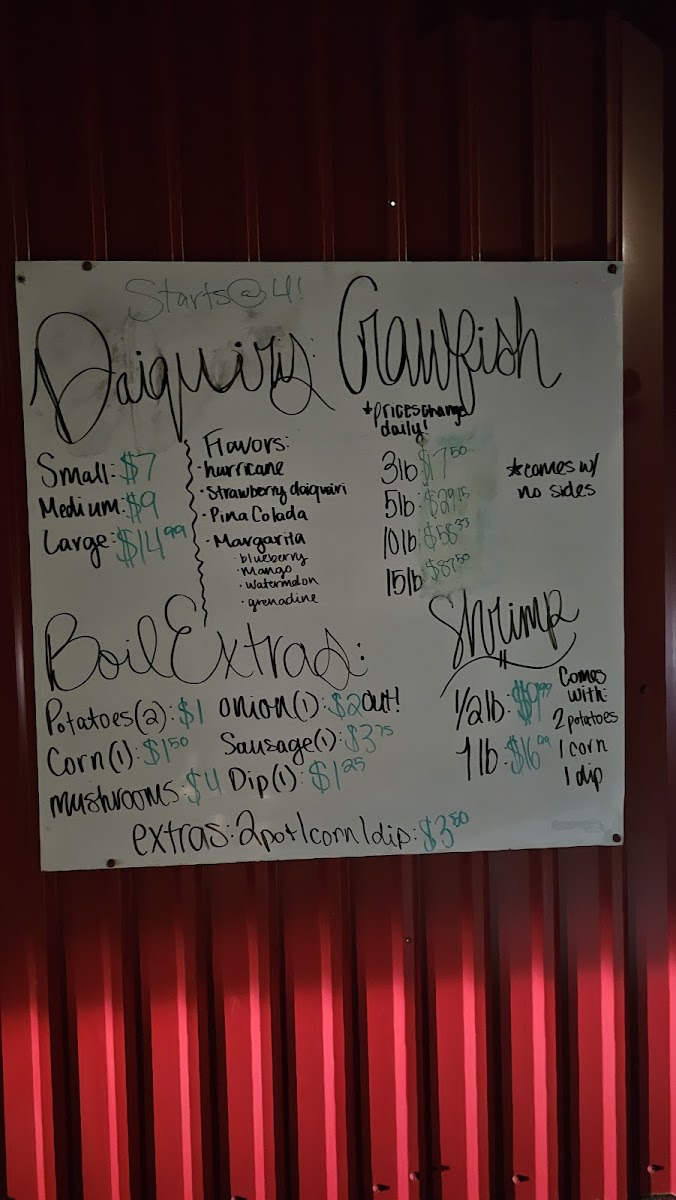 Starts@4!
Daiquiris:
Small: $7
Medium: $9
Large: $14.99
Flavors:
·hurricane
·Strawberry daiquairi
·Pina Colada
·Margarita
·blueberry
·Mango
·watermelon
·grenadine
Crawfish
*prices change
daily!
3lb $17.50
5lb: $29.15
10lb $58.33
15lb $87.50
*comes w/
no sides
Boil Extras:
Potatoes(2): $1
Corn(1): $1.50
mushrooms: $4
onion(1): $2 out!
Sausage(1): $3.75
Dip(1): $1.25
extras: 2pot/1corn/1dip: $3.50
Shrimp
1/2lb: $9.99
1lb: $16.99
Comes
with:
2 potatoes
1 corn
1 dip